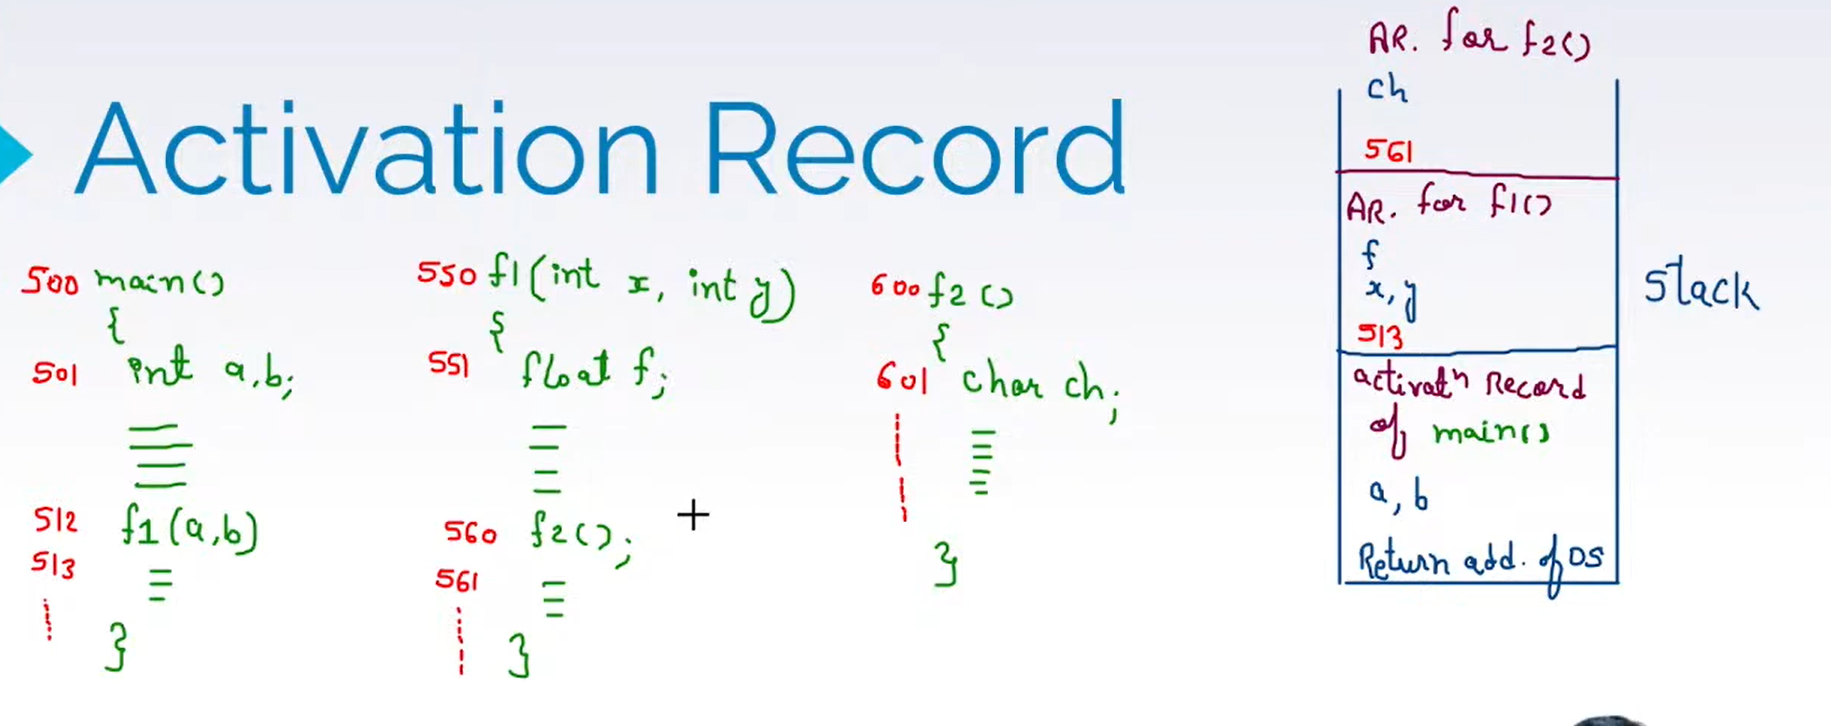 Activation Record
500 main()
{
501 int a,b;
512 f1(a,b)
513
}
550 f1(int x, int y)
{
551 float f;
560 f2();
561
}
600 f2()
{
601 char ch;
}
AR. for f2()
ch
561
AR. for f1()
f
x,y
513
activatn Record
of main()
a,b
Return add. of OS
Stack